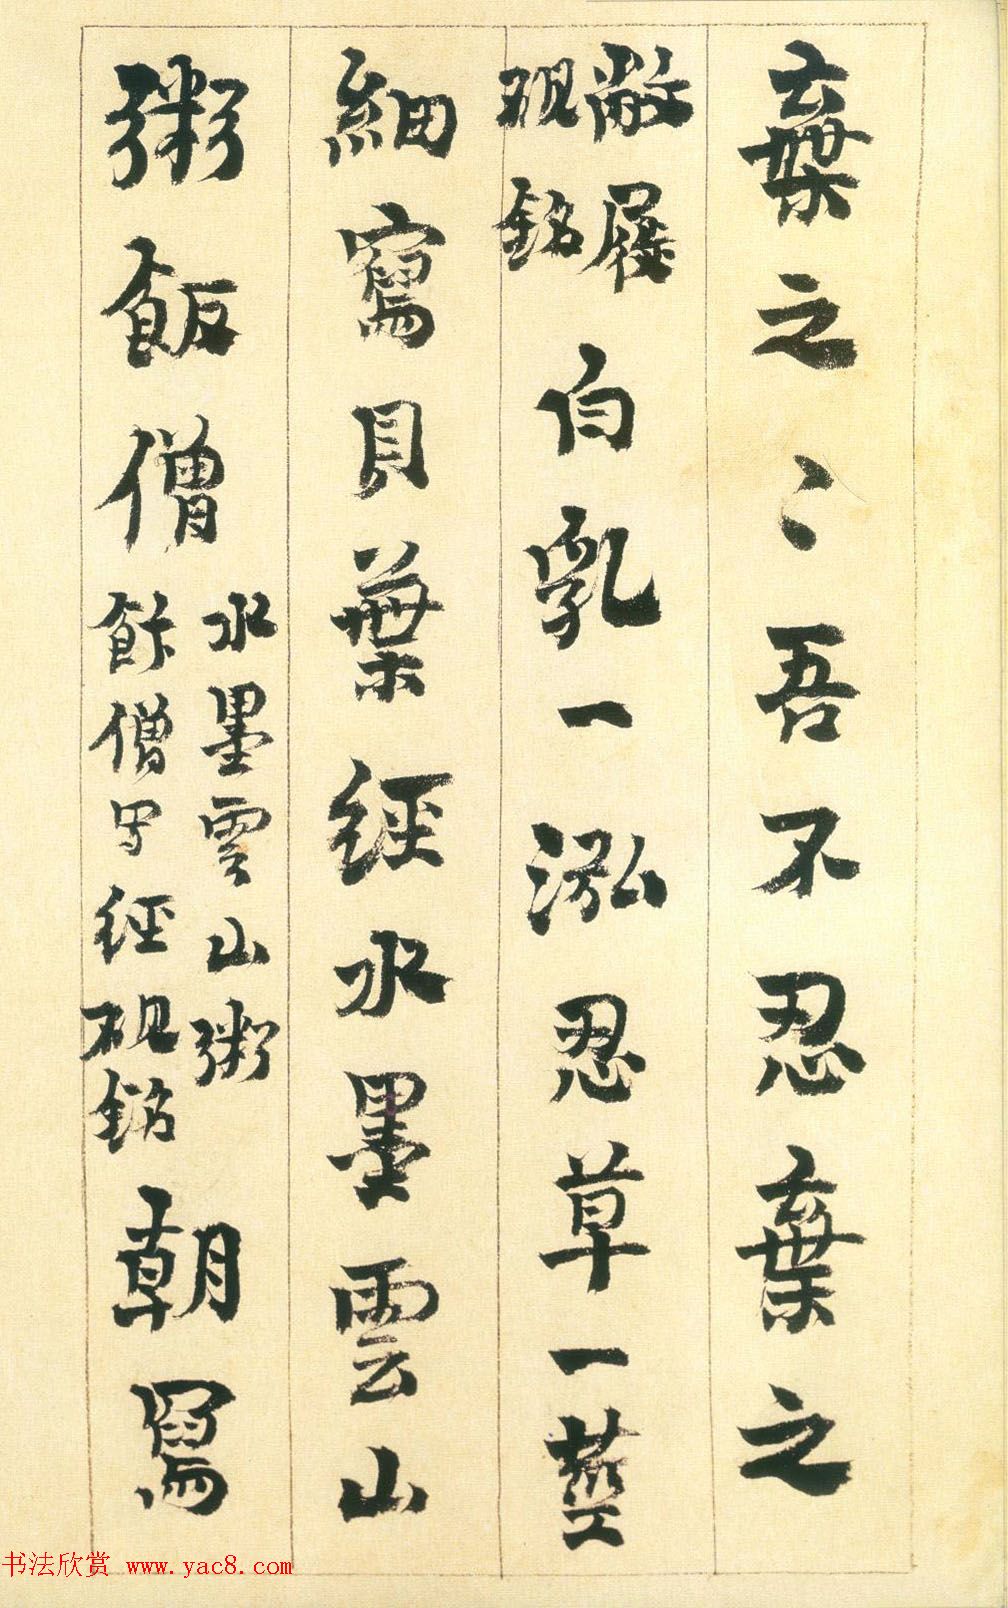 棄之〻吾不忍棄之
敝屣
硯銘
白乳一泓忍草一莖
細寫貝葉經水墨雲山
粥飯僧
水墨雲山粥
飰僧写經硯銘
朝寫
书法欣赏 www.yac8.com